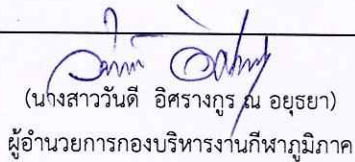 (นางสาววันดี อิศรางกูร ณ อยุธยา)
ผู้อำนวยการกองบริหารงานกีฬาภูมิภาค